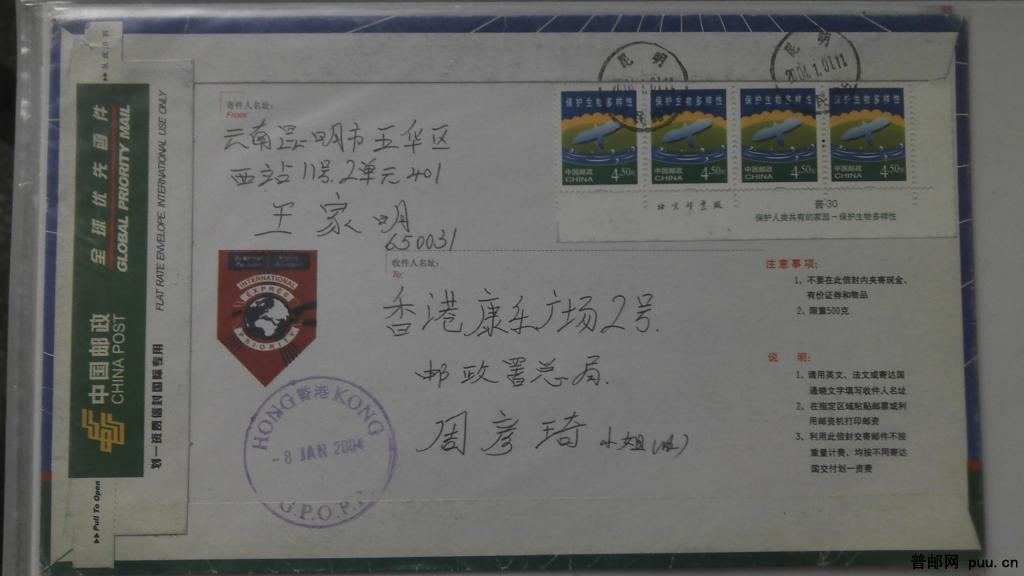 全球优先函件
GLOBAL PRIORITY MAIL
FLAT RATE ENVELOPE INTERNATIONAL USE ONLY
中国邮政
CHINA POST
划一资费信封国际专用
▸▸Pull To Open
寄件人名址:
From:
云南昆明市五华区
西站11号2单元401
王家明
650031
昆明
2004.1.01.11
昆明
2004.1.01.11
保护生物多样性
中国邮政
CHINA
4.50元
保护生物多样性
中国邮政
CHINA
4.50元
保护生物多样性
中国邮政
CHINA
4.50元
保护生物多样性
中国邮政
CHINA
4.50元
北京邮票厂
普-30
保护人类共有的家园-保护生物多样性
INTERNATIONAL
EXPRES
PRIORITY
收件人名址:
To:
香港康乐广场2号.
邮政署总局.
周彦琦小姐(收)
HONG香港KONG
-8 JAN 2004
G.P.O.
注意事项:
1、不要在此信封内夹寄现金、
有价证券和物品
2、限重500克
说 明:
1、请用英文、法文或寄达国
通晓文字填写收件人名址
2、在指定区域粘贴邮票或利
用邮资机打印邮资
3、利用此信封交寄邮件不按
重量计费,均按不同寄达
国交付划一资费
普邮网 puu.cn